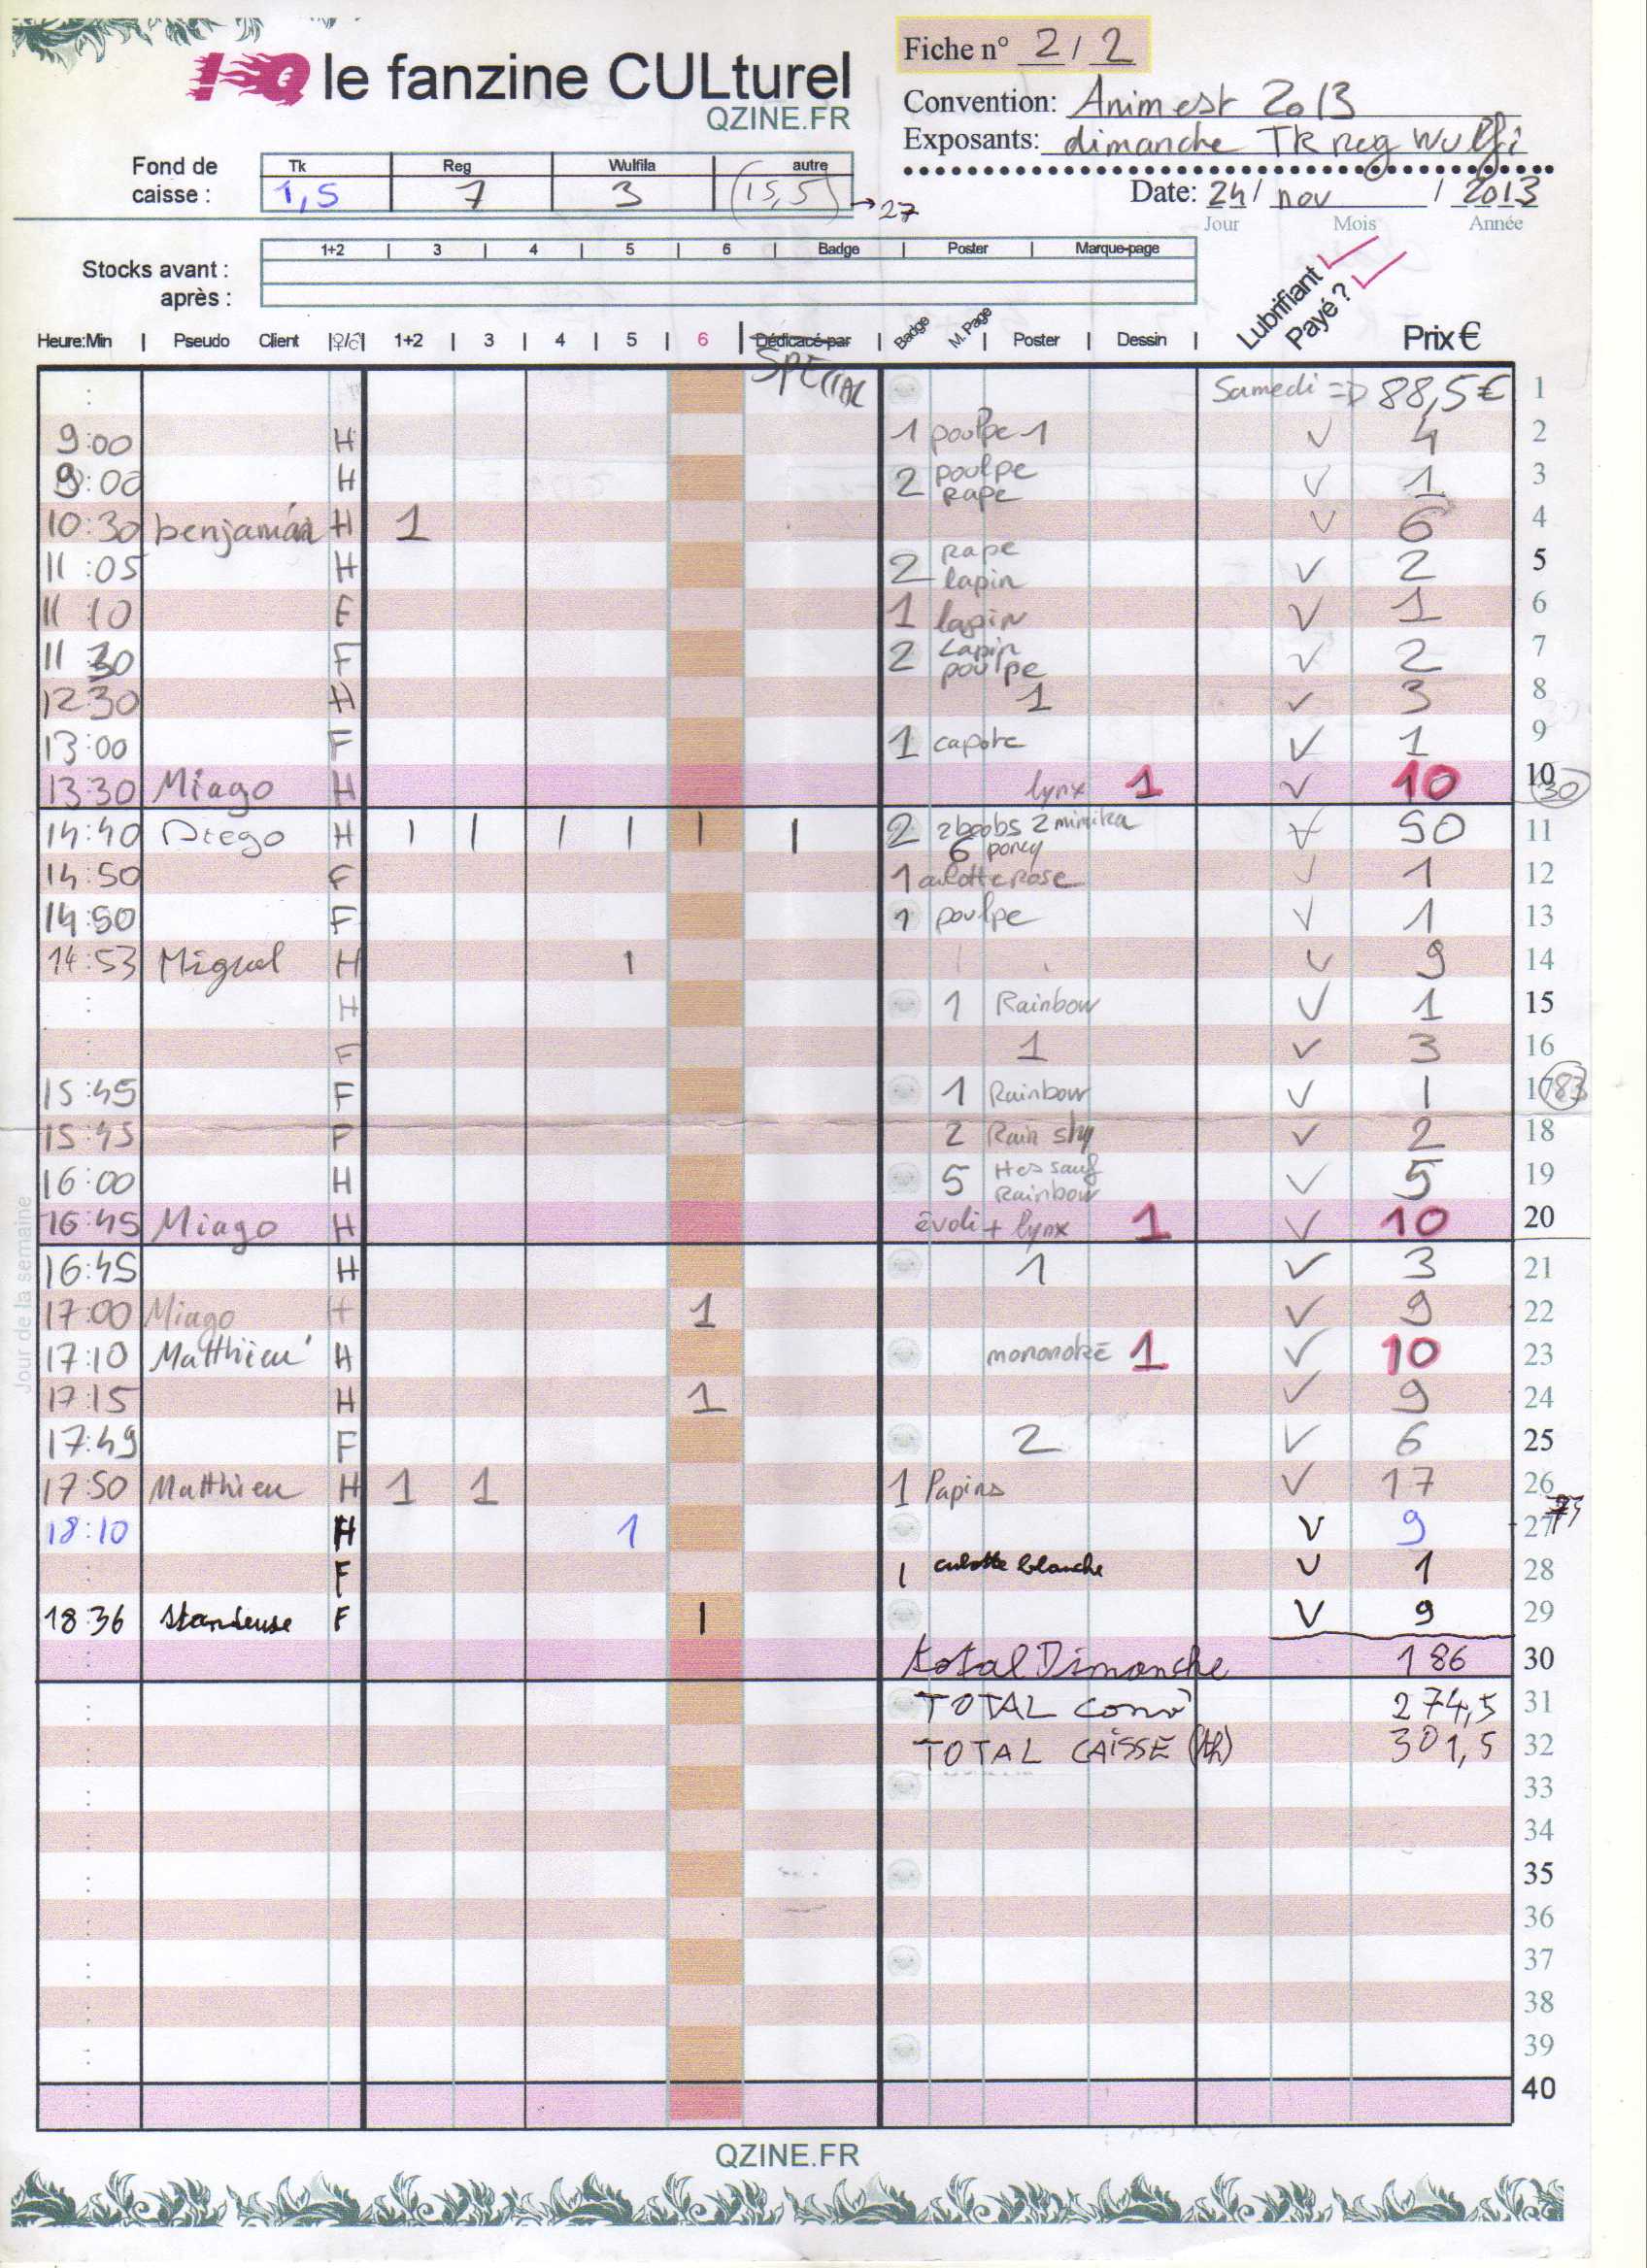 I♥Q le fanzine CULturel
QZINE.FR
Fiche n° 2 / 2
Convention: Animest 2013
Exposants: dimanche TK reg Wulfi
Date: 24 / nov / 2013
Jour Mois Année
Fond de caisse :
Tk Reg Wulfila autre
1,5 7 3 (15,5) → 27
1+2 | 3 | 4 | 5 | 6 | Badge | Poster | Marque-page
Stocks avant :
après :
Lubrifiant
Payé ?
Heure:Min | Pseudo Client |♀/♂| 1+2 | 3 | 4 | 5 | 6 | Dédicacé par | Badge M. Page | Poster | Dessin | Prix €
SPECIAL
Samedi => 88,5 € 1
9:00 H 1 poulpe 1 V 4 2
9:00 H 2 poulpe rape V 1 3
10:30 benjamin H 1 V 6 4
11:05 H 2 rape lapin V 2 5
11 10 F 1 lapin V 1 6
11 30 F 2 Lapin poulpe V 2 7
12 30 H 1 V 3 8
13:00 F 1 capote V 1 9
13:30 Miago H lynx 1 V 10 10 (30)
14:40 Diego H 1 1 1 1 1 1 2 2boobs 2 mimika 6 poney V 50 11
14:50 F 1 culotte rose V 1 12
14:50 F 1 poulpe V 1 13
14:53 Miguel H 1 V 9 14
H 1 Rainbow V 1 15
F 1 V 3 16
15:45 F 1 Rainbow V 1 17 (83)
15:45 F 2 Rain shy V 2 18
16:00 H 5 Hes sauf Rainbow V 5 19
16:45 Miago H évoli + lynx 1 V 10 20
16:45 H 1 V 3 21
17:00 Miago H 1 V 9 22
17:10 Matthieu H mononoké 1 V 10 23
17:15 H 1 V 9 24
17:49 F 2 V 6 25
17:50 Matthieu H 1 1 1 Papins V 17 26
18:10 H 1 V 9 27
F 1 culotte blanche V 1 28
18:36 standeuse F 1 V 9 29
total Dimanche 186 30
TOTAL conv 274,5 31
TOTAL CAISSE (th) 301,5 32
33
34
35
36
37
38
39
40
Jour de la semaine
QZINE.FR